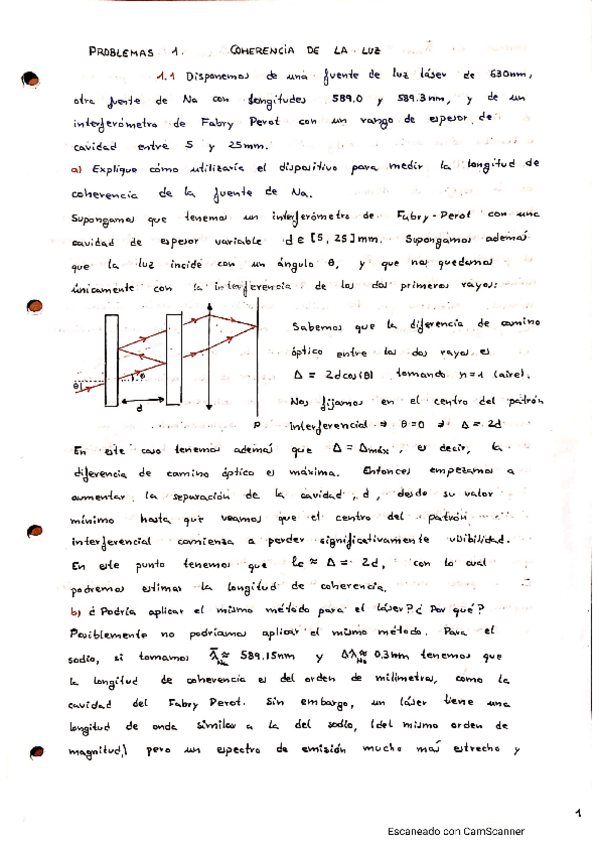 PROBLEMAS 1. COHERENCIA DE LA LUZ
1.1 Disponemos de una fuente de luz láser de 630nm,
otra fuente de Na con longitudes 589.0 y 589.3nm, y de un
interferómetro de Fabry Perot con un rango de espesor de
cavidad entre 5 y 25mm.
a) Explique cómo utilizaría el dispositivo para medir la longitud de
coherencia de la fuente de Na.
Supongamos que tenemos un interferómetro de Fabry-Perot con una
cavidad de espesor variable d ∈ [5, 25]mm. Supongamos además
que la luz incide con un ángulo θ, y que nos quedamos
únicamente con la interferencia de los dos primeros rayos:
θ
θ
d
P
Sabemos que la diferencia de camino
óptico entre los dos rayos es
Δ = 2dcos(θ) tomando n=1 (aire).
Nos fijamos en el centro del patrón
interferencial ⇒ θ=0 ⇒ Δ = 2d
En este caso tenemos además que Δ = Δmáx, es decir, la
diferencia de camino óptico es máxima. Entonces empezamos a
aumentar la separación de la cavidad, d, desde su valor
mínimo hasta que veamos que el centro del patrón
interferencial comienza a perder significativamente visibilidad.
En este punto tenemos que lc ≈ Δ = 2d, con lo cual
podremos estimar la longitud de coherencia.
b) ¿Podría aplicar el mismo método para el láser? ¿Por qué?
Posiblemente no podríamos aplicar el mismo método. Para el
sodio, si tomamos λ̄Na ≈ 589.15nm y ΔλNa ≈ 0.3nm tenemos que
la longitud de coherencia es del orden de milímetros, como la
cavidad del Fabry Perot. Sin embargo, un láser tiene una
longitud de onda similar a la del sodio, (del mismo orden de
magnitud,) pero un espectro de emisión mucho más estrecho y
1
Escaneado con CamScanner